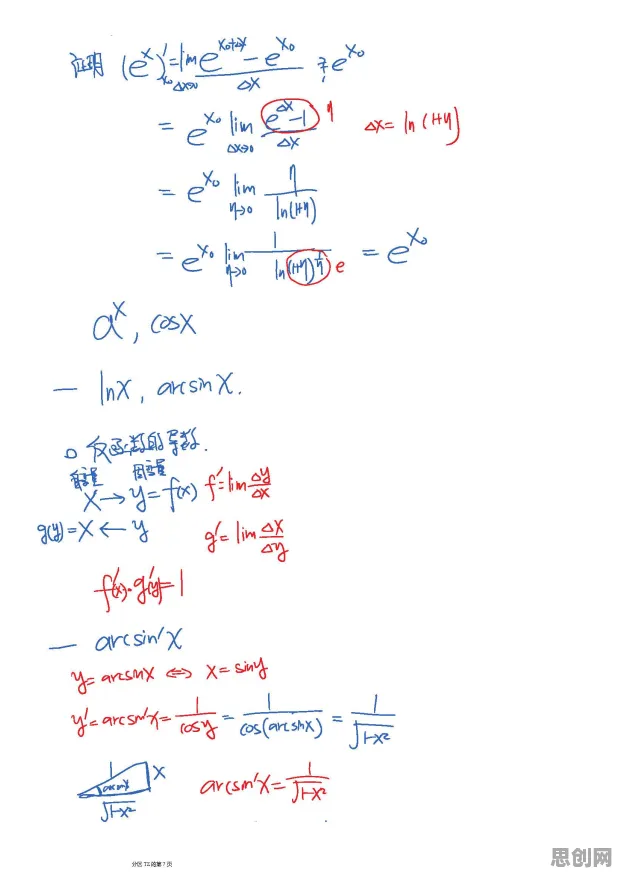 证明 (e^x)'|_{x_0} = lim_{Δx→0} (e^{x_0+Δx} - e^{x_0})/Δx = e^{x_0}
= e^{x_0} lim_{Δx→0} (e^{Δx}-1)/Δx η Δx = ln(1+η)
= e^{x_0} lim_{η→0} η/ln(1+η)
= e^{x_0} lim_{η→0} 1/ln(1+η)^{1/η} e = e^{x_0}
a^x, cosx
— lnx, arcsinx.
□ 反函数的导数.
自变量 因变量
x → y = f(x) f' = lim Δy/Δx
g(y) = x ← y g' = lim Δx/Δy
f'(x)·g'(y) = 1
— arcsin'x
y = arcsinx ⇔ x = siny
y' = arcsin'x = 1/cosy = 1/cos(arcsinx) = 1/√(1-x²)
1 arcsinx x √(1-x²) arcsin'x = 1/√(1-x²)
分区 T2 的第 7 页
思创网